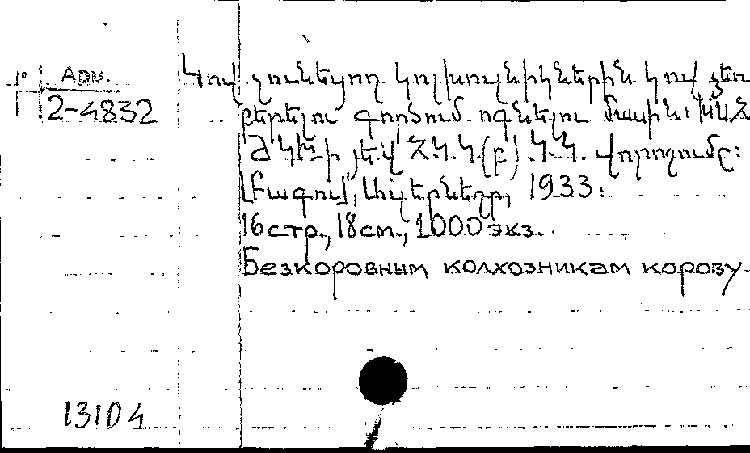 Арм.
2-4832
Կով չունեցող կոլխոզնիկներին կով ձեռ
բերելու գործում ոգնելու մասին:
յեվ Կ.Կ.(բ).Կ.Կ. վորոշումը:
Բագու, Ազերներ, 1933:
16стр., 18см., 1000экз.
Безкоровным колхозникам корову.
13104